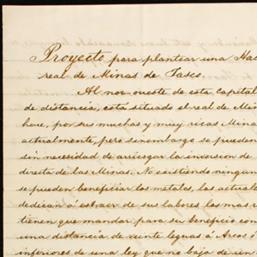 Proyecto para plantear una Hac
real de Minas de Tasco.
Al nor-oueste de esta capital
de distancia, está situado el real de Min
here, por sus muchas y muy ricas Mina
actualmente, pero sinembargo se pueden
sin necesidad de arriesgar la inversion de
directa de las Minas. No existiendo ningun
se pueden beneficiar los metales, los actuale
dedican á extraer de sus labores los mas r
tienen que mandar para su beneficio con
una distancia de veinte leguas á Arcos ó
inferiores de una ley que no baja de un